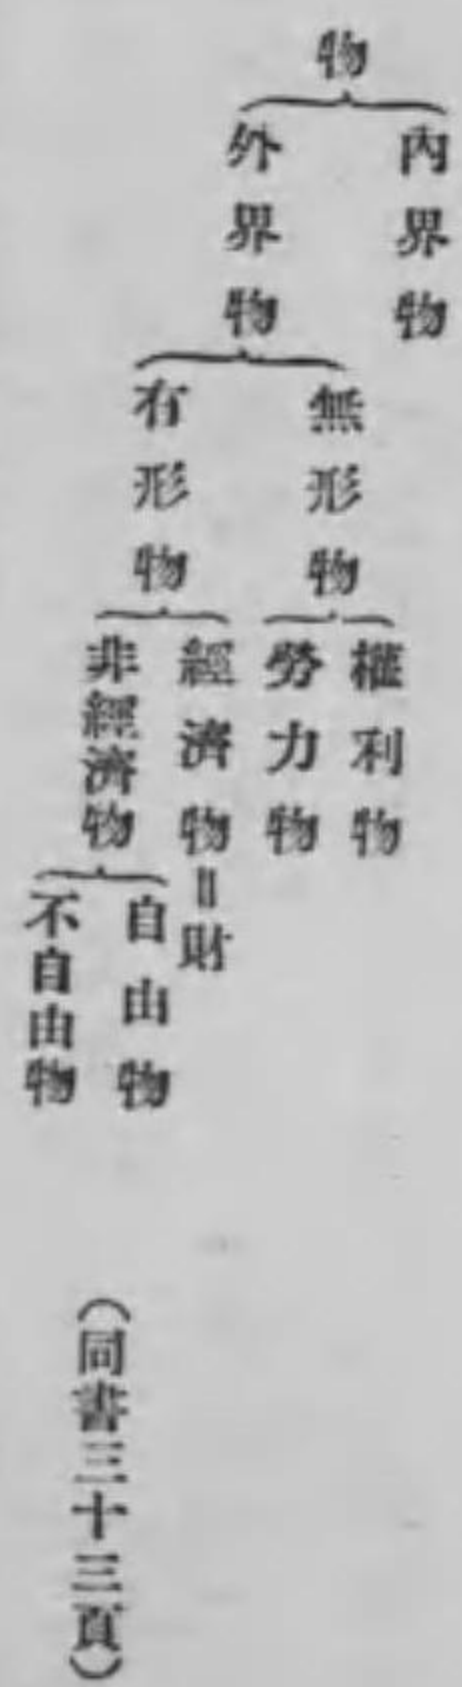 物
內界物
外界物
無形物
權利物
勞力物
有形物
經濟物＝財
非經濟物
自由物
不自由物
（同書三十三頁）